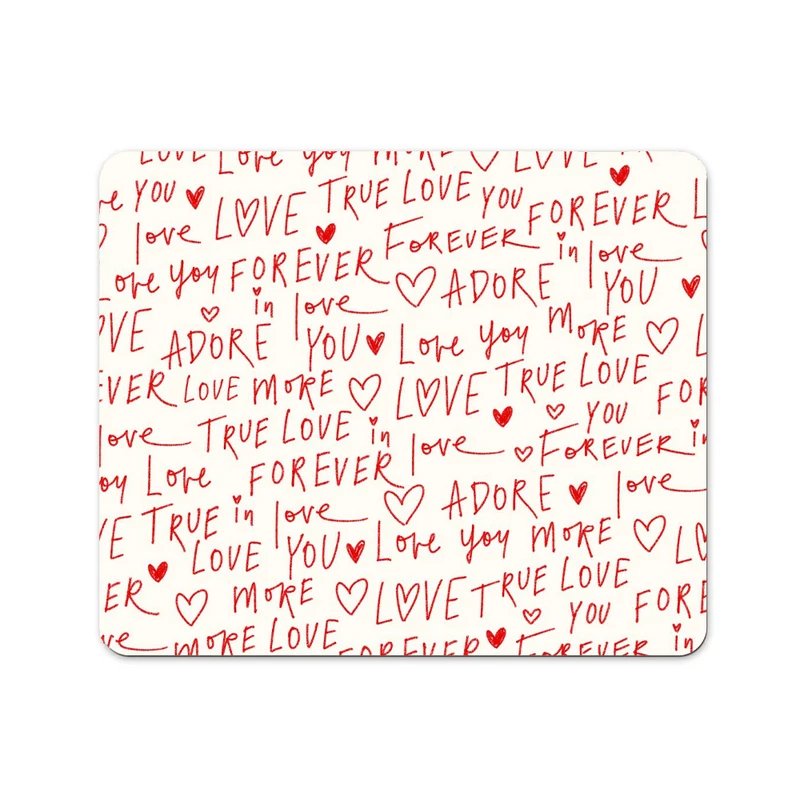 LOVE Love you MORE LOVE
YOU LOVE TRUE LOVE YOU FOREVER
love FOREVER in love
Love you FOREVER in love ADORE YOU
ADORE YOU Love you MORE
LOVE MORE LOVE TRUE LOVE
love TRUE LOVE in love FOREVER YOU FOR
Love FOREVER ADORE love
TRUE in love Love you MORE
LOVE YOU
MORE LOVE TRUE LOVE YOU FORE
MORE LOVE FOREVER FOREVER in